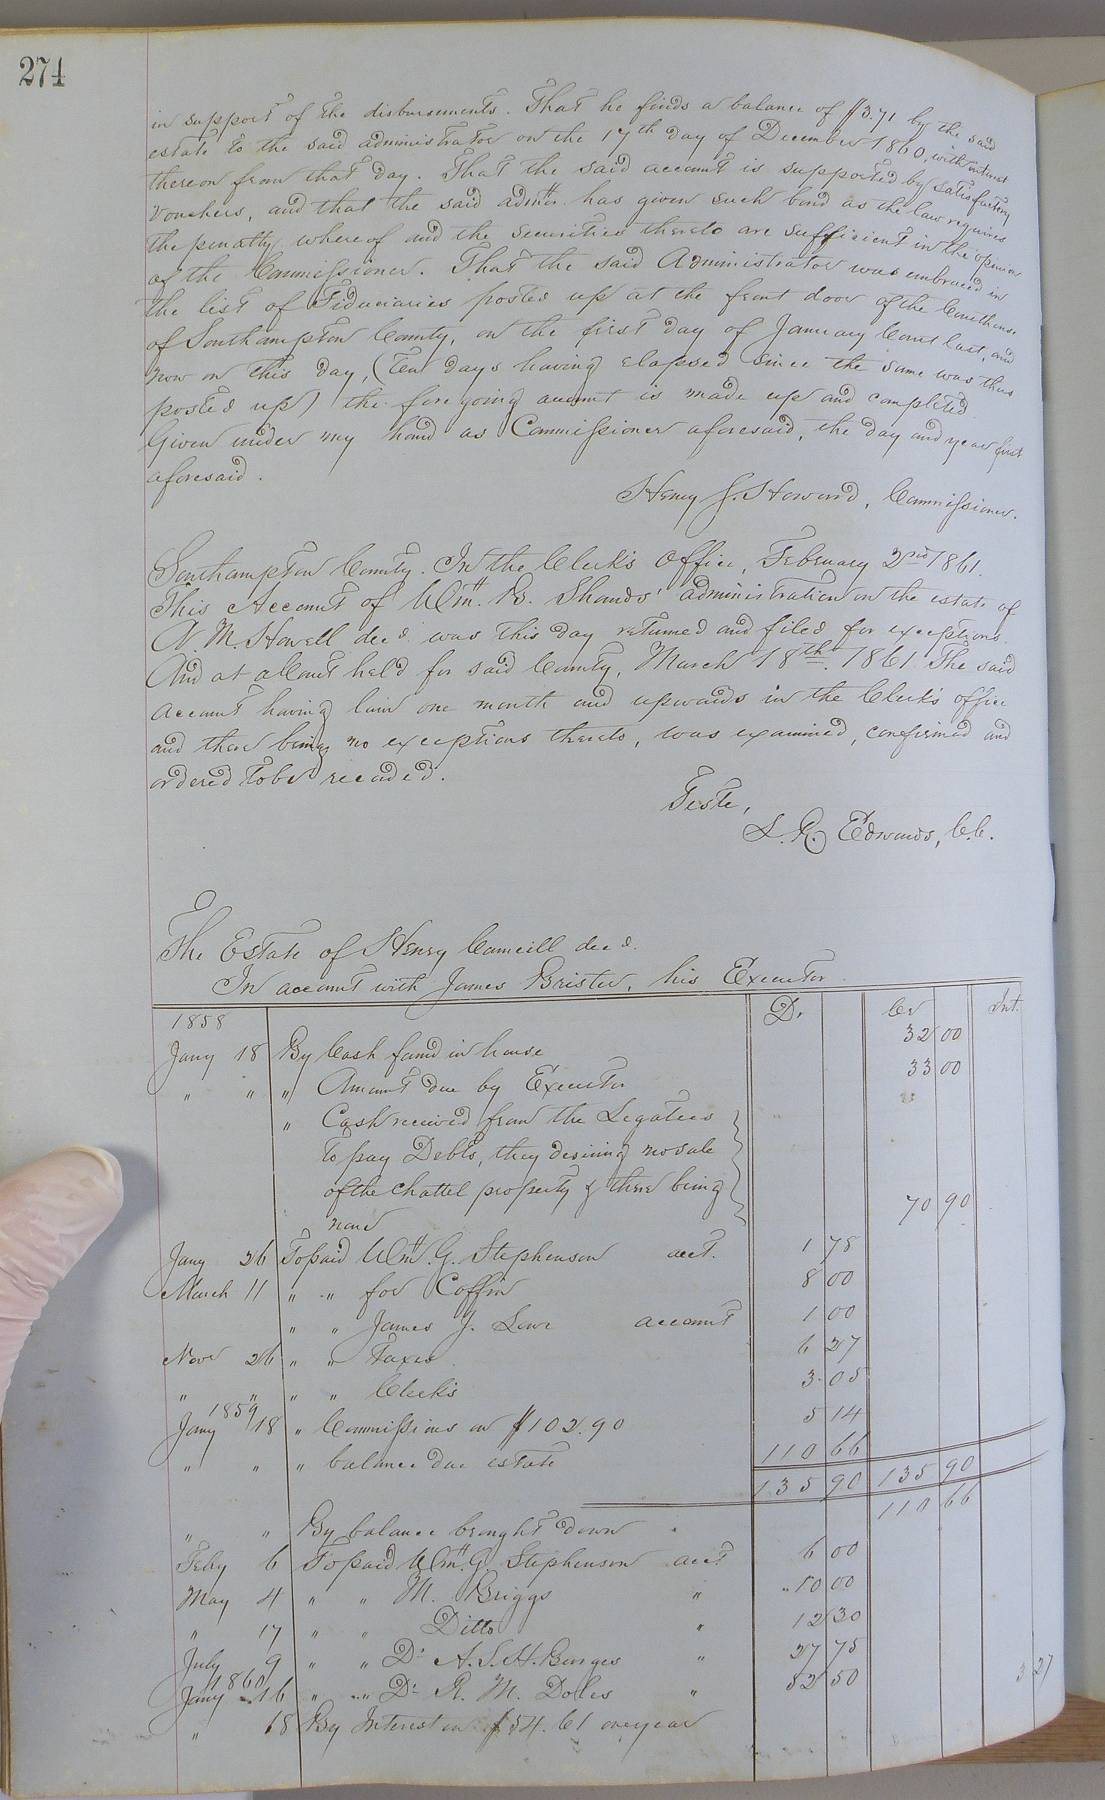 274
in support of the disbursements. That he finds a balance of $3.71 by the said
estate to the said administrator on the 17th day of December 1860, with interest
thereon from that day. That the said account is supported by satisfactory
vouchers, and that the said admtr. has given such bond as the law requires
the penalty whereof and the securities thereto are sufficient in the opinion
of the Commissioner. That the said Administrator was embraced in
the list of Fiduciaries posted up at the front door of the Courthouse
of Southampton County, on the first day of January Court last, and
now on this day, (Ten days having elapsed since the same was thus
posted up) the foregoing account is made up and completed.
Given under my hand as Commissioner aforesaid, the day and year first
aforesaid.
Henry J. Howard, Commissioner.
Southampton County. In the Clerk's Office, February 2nd 1861.
This Account of Wm. B. Shands' administration on the estate of
N. M. Howell decd. was this day returned and filed for exceptions.
And at a Court held for said County, March 18th. 1861. The said
account having lain one month and upwards in the Clerk's office
and there being no exceptions thereto, was examined, confirmed and
ordered to be recorded.
Teste,
L. R. Edwards, C.C.
The Estate of Henry decd.
In account with James Brister, his Executor.
Dr Cr Int.
1858
Jany 18 By Cash found in house 32 00
" " " Amount due by Executor 33 00
" Cash received from the Legatees
to pay Debts, they desiring no sale
of the chattel property & there being
none 70 90
Jany 26 To paid Wm. G. Stephenson acct. 1 78
March 11 " " for Coffin 8 00
" " James J. account 1 00
Novr 26 " " Taxes 6 27
" " " " Clerk's 3.05
1859
Jany 18 " Commissions on $102.90 5 14
" " " balance due estate 110 66
135 90 135 90
" " By balance brought down 110 66
Feby 6 To paid Wm. G. Stephenson acct 6 00
May 4 " " M. Briggs " 10 00
" 17 " " Ditto " 12 30
July 9 " " Dr A. S. H. Burges " 27 75
1860
Jany 16 " " Dr R. M. Doles " 52 50
" 18 By Interest on $54.61 one year 3 27